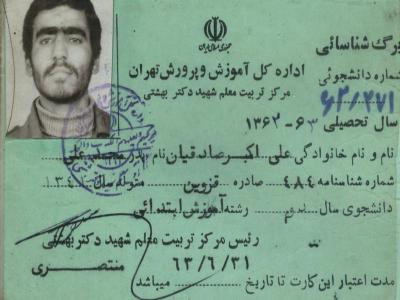 برگ شناسائی
جمهوری اسلامی ایران
اداره کل آموزش و پرورش تهران
شماره دانشجوئی
مرکز تربیت معلم شهید دکتر بهشتی
۶۲/۴۷۱
سال تحصیلی ۶۳-۱۳۶۲
نام و نام خانوادگی علی اکبر صادقیان نام پدر علی
شماره شناسنامه ۴۸۴ صادره قزوین متولد سال ۱۳۴
دانشجوی سال دوم رشته آموزش ابتدائی
رئیس مرکز تربیت معلم شهید دکتر بهشتی
منتصری
مدت اعتبار این کارت تا تاریخ ۶۳/۶/۳۱ میباشد